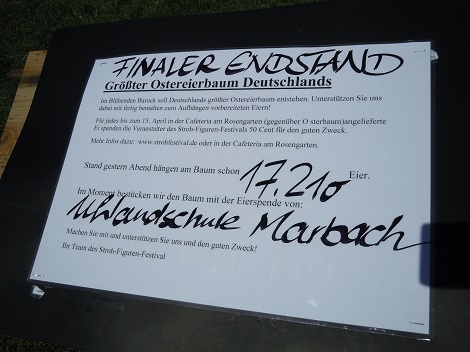 FINALER ENDSTAND
Größter Ostereierbaum Deutschlands
Im Blühenden Barock soll Deutschlands größter Ostereierbaum entstehen. Unterstützen Sie uns
dabei mit fertig bemalten zum Aufhängen vorbereiteten Eiern!
Für jedes bis zum 15. April in der Cafeteria am Rosengarten (gegenüber O sterbaum)angelieferte
Ei spenden die Veranstalter des Stroh-Figuren-Festivals 50 Cent für den guten Zweck.
Mehr Infos dazu: www.strohfestival.de oder in der Cafeteria am Rosengarten.
Stand gestern Abend hängen am Baum schon 17.210 Eier.
Im Moment bestücken wir den Baum mit der Eierspende von:
Uhlandschule Marbach
Machen Sie mit und unterstützen Sie uns und den guten Zweck!
Ihr Team des Stroh-Figuren-Festival